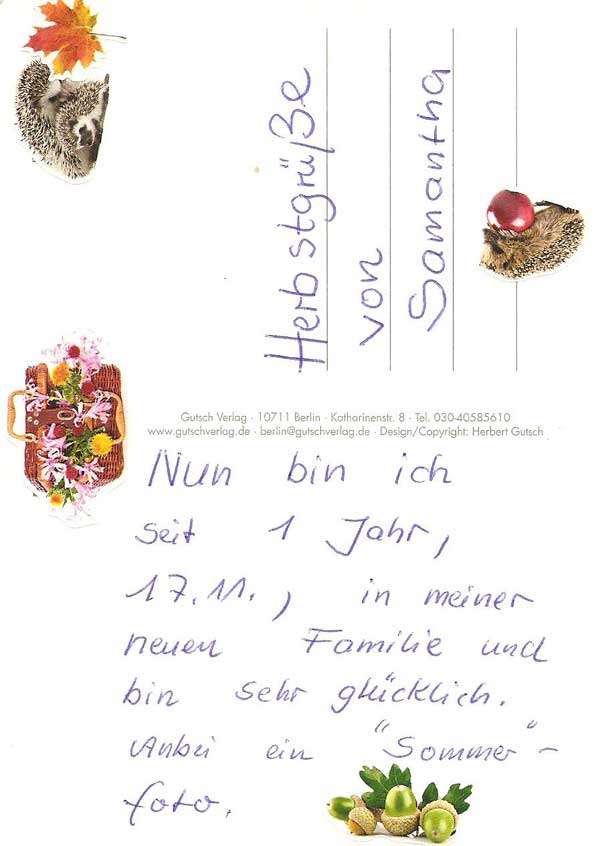 Herbstgrüße
von
Samantha
Gutsch Verlag · 10711 Berlin · Katharinenstr. 8 · Tel. 030-40585610
www.gutschverlag.de · berlin@gutschverlag.de · Design/Copyright: Herbert Gutsch
Nun bin ich
seit 1 Jahr,
17.11., in meiner
neuen Familie und
bin sehr glücklich.
Anbei ein "Sommer"-
foto.